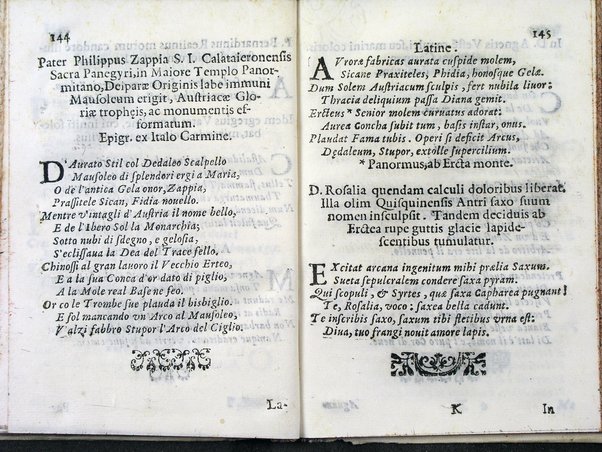 144
Pater Philippus Zappia S. I. Calataieronensis
Sacra Panegyri, in Maiore Templo Panor-
mitano, Deiparæ Originis labe immuni
Mausoleum erigit, Austriacæ Glo-
riæ tropheis, ac monumentis ef-
formatum.
Epigr. ex Italo Carmine.
D'Aurato Stil col Dedaleo Scalpello
Mausoleo di splendori ergi a Maria,
O de l'antica Gela onor, Zappia,
Prassitele Sican, Fidia nouello.
Mentre v'intagli d'Austria il nome bello,
E de l'Ibero Sol la Monarchia;
Sotto nubi di sdegno, e gelosia,
S'eclissaua la Dea del Trace fello.
Chinossi al gran lauoro il Vecchio Erteo,
E a la sua Conca d'or dato di piglio,
A la Mole real Base ne feo.
Or co le Trombe sue plauda il bisbiglio.
E sol mancando vn Arco al Mausoleo,
V'alzi fabbro Stupor l'Arco del Ciglio.
La-
145
Latine.
AVroræ fabricas aurata cuspide molem,
Sicane Praxiteles, Phidia, honosque Gelæ.
Dum Solem Austriacum sculpis, fert nubila liuor:
Thracia deliquium passa Diana gemit.
Ercteus * Senior molem curuatus adorat:
Aurea Concha subit tum, basis instar, onus.
Plaudat Fama tubis. Operi si deficit Arcus,
Dedaleum, Stupor, extolle supercilium.
* Panormus, ab Ercta monte.
D. Rosalia quendam calculi doloribus liberat.
Illa olim Quisquinensis Antri saxo suum
nomen insculpsit. Tandem deciduis ab
Erctea rupe guttis glacie lapide-
scentibus tumulatur.
EXcitat arcana ingenitum mihi prælia Saxum.
Sueta sepulcralem condere saxa pyram.
Qui scopuli, & Syrtes, quæ saxa Capharea pugnant!
Te, Rosalia, voco: saxea bella cadunt.
Te inscribis saxo, saxum tibi fletibus vrna est:
Diua, tuo frangi nouit amore lapis.
K
In